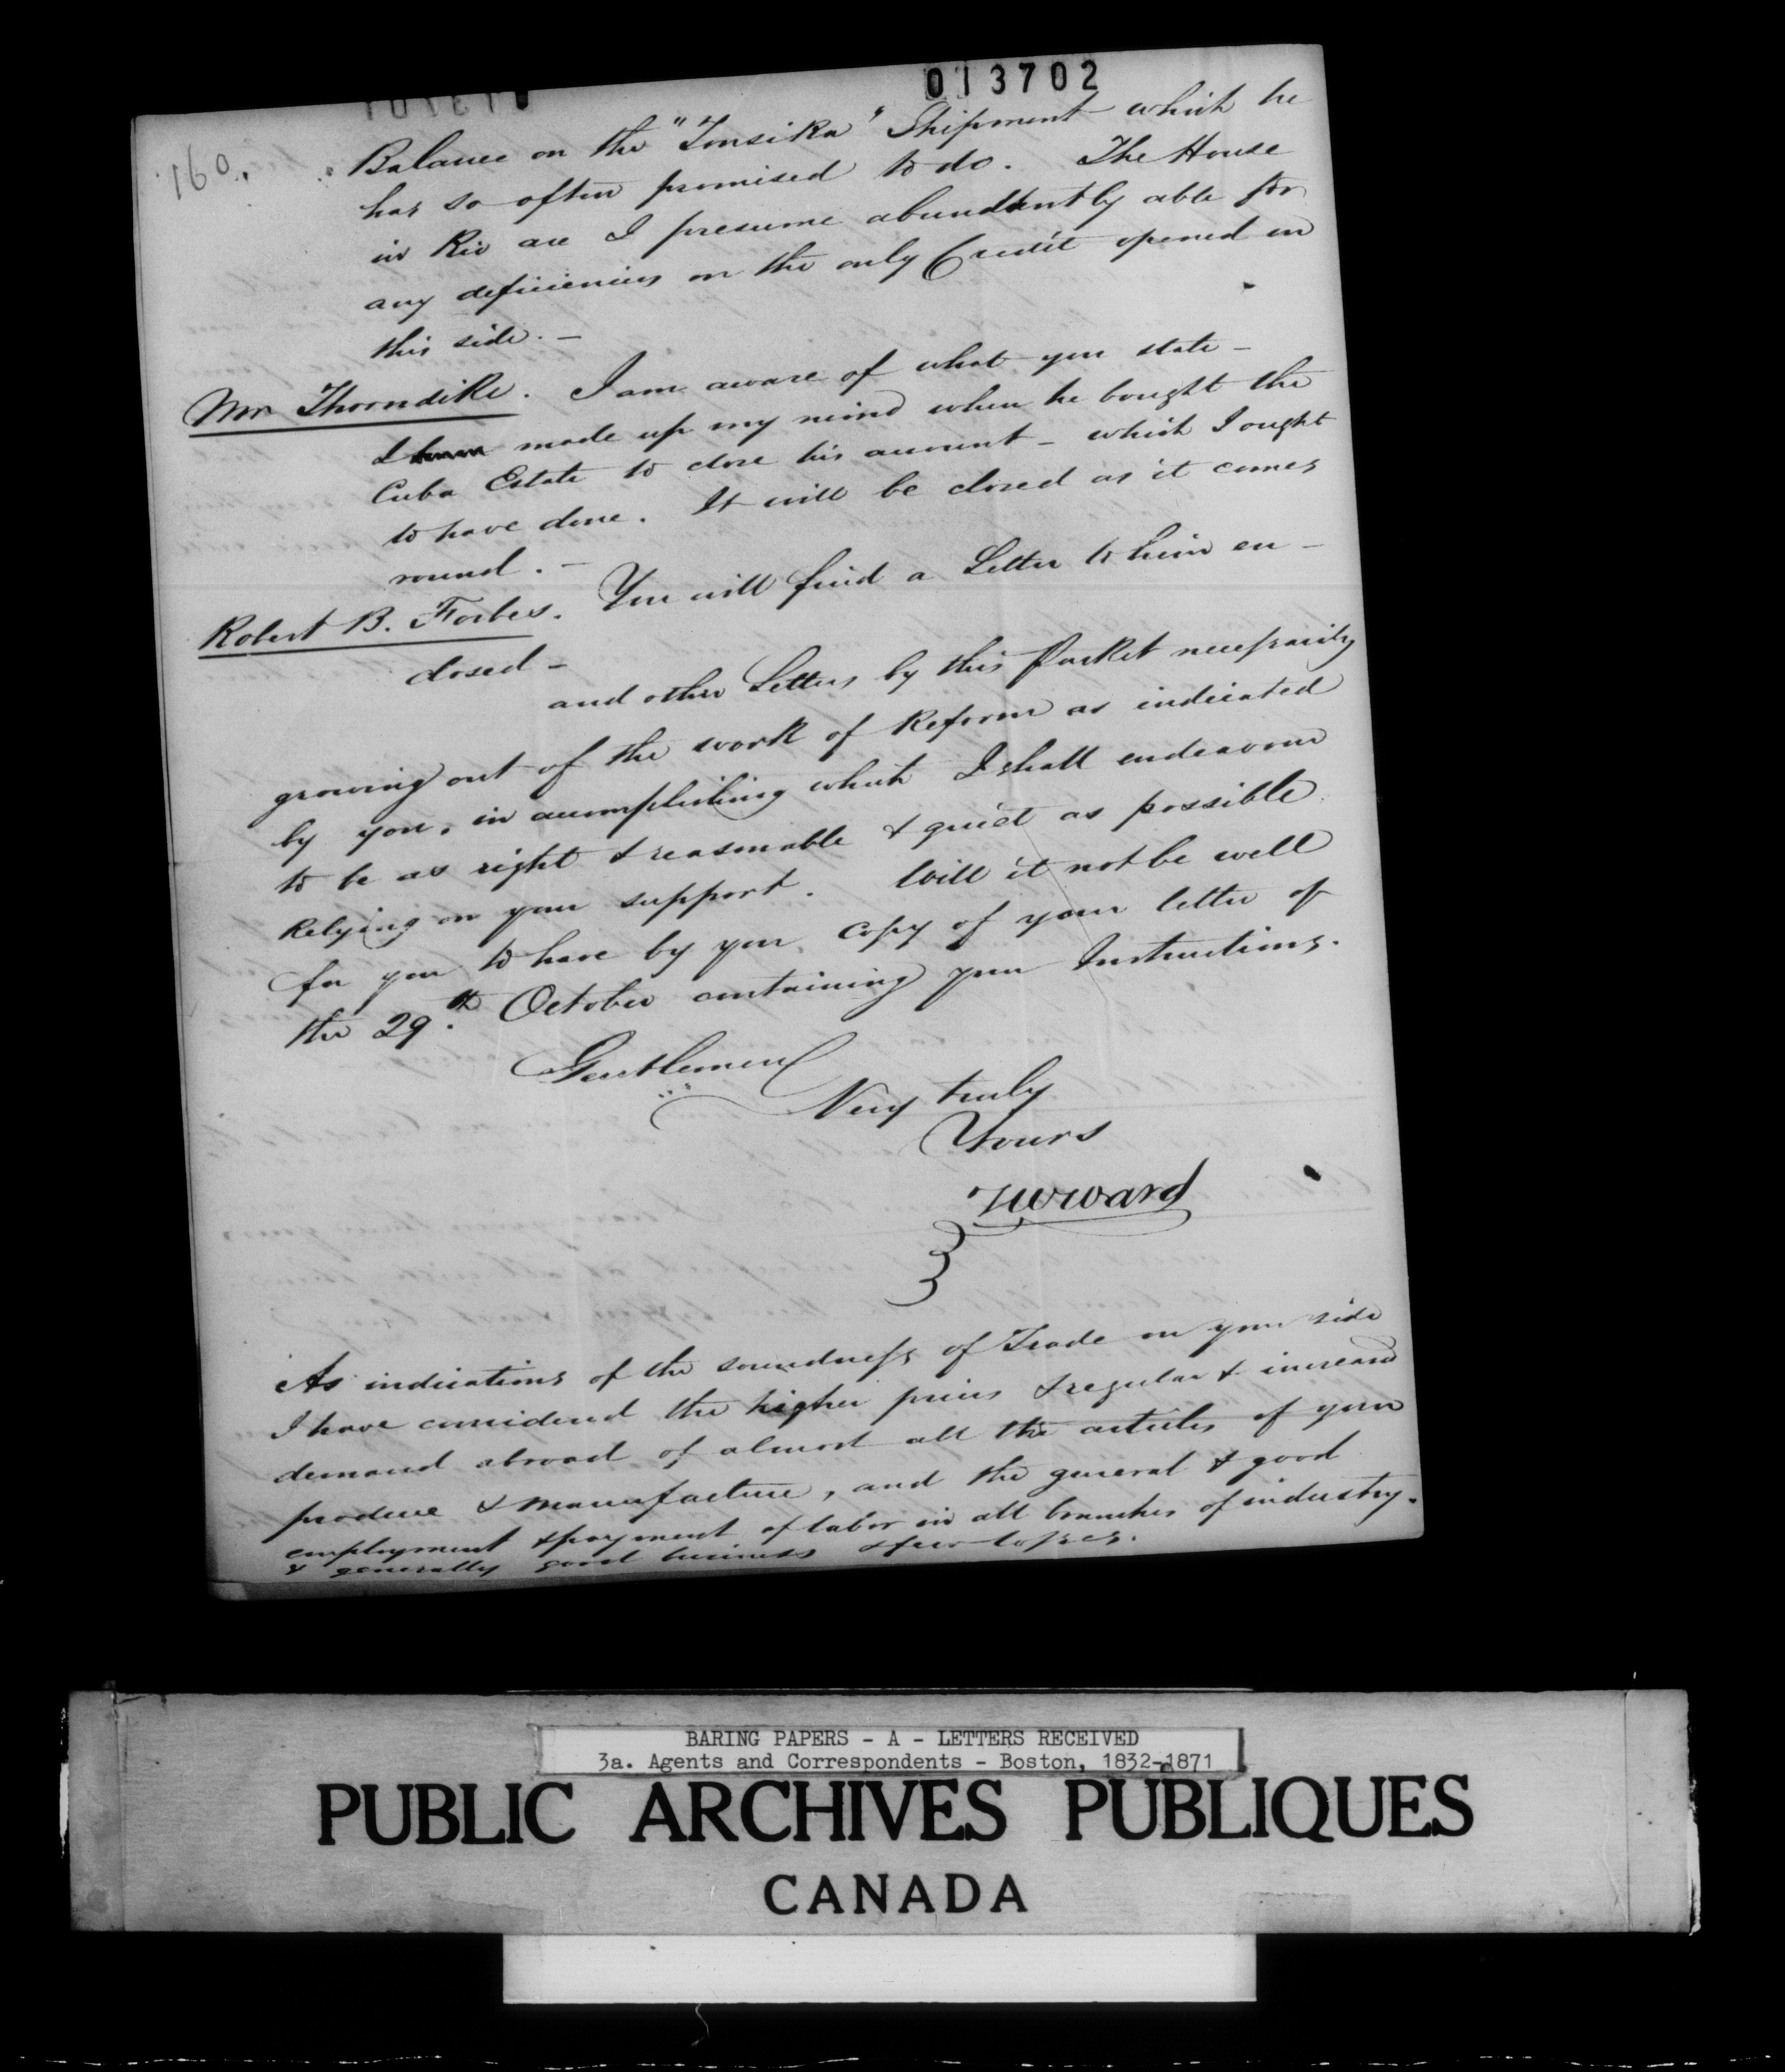 013702
160.
Balance on the "Tonsika" Shipment which he
has so often promised to do. The House
in Rio are I presume abundantly able for
any deficiencies on the only Credit opened on
this side. –
Mr Thorndike. I am aware of what you state –
I made up my mind when he bought the
Cuba Estate to close his account – which I ought
to have done. It will be closed as it comes
round. –
Robert B. Forbes. You will find a Letter to him en –
closed –
and other Letters by this Packet necessarily
growing out of the work of Reform as indicated
by you, in accomplishing which I shall endeavour
to be as right & reasonable & quiet as possible
Relying on your support. Will it not be well
for you to have by you copy of your letter of
the 29th October containing your Instructions.
Gentlemen
Very truly
Yours
TWWard
As indications of the soundness of Trade on your side
I have considered the higher prices & regular & increased
demand abroad of almost all the articles of your
produce & manufacture, and the general & good
employment & payment of labor in all branches of industry.
& generally good business & few losses.
BARING PAPERS - A - LETTERS RECEIVED
3a. Agents and Correspondents - Boston, 1832-1871
PUBLIC ARCHIVES PUBLIQUES
CANADA